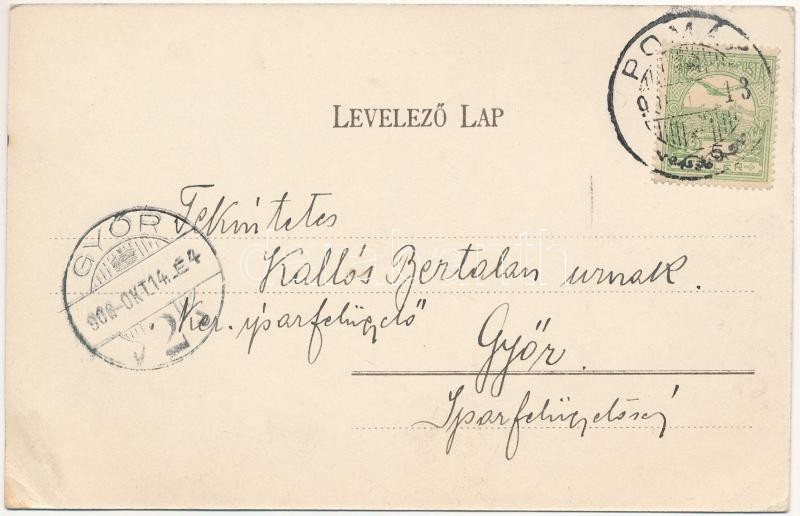 LEVELEZŐ LAP
POMÁ
Tekintetes
GYŐR
Kallós Bertalan urnak.
908-OKT.14.-É4
Ker. iparfelügyelő
Győr.
Iparfelügyelőség